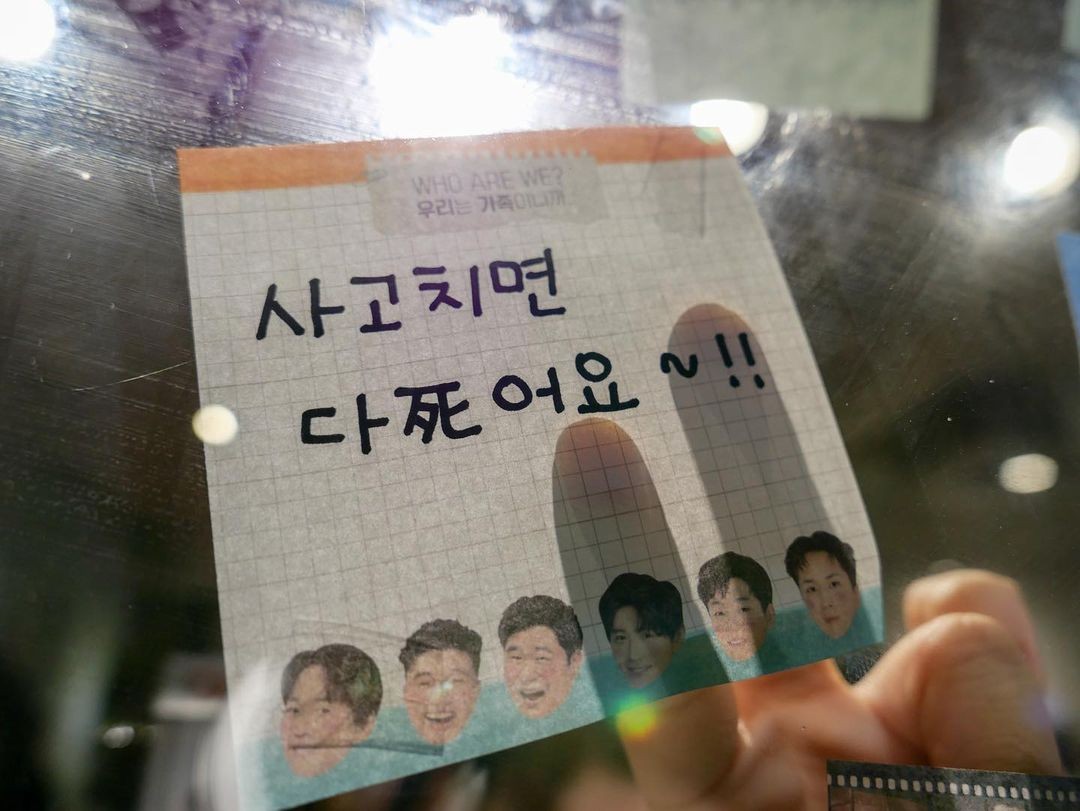 WHO ARE WE?
우리는 가족이니까
사고치면
다死어요~!!